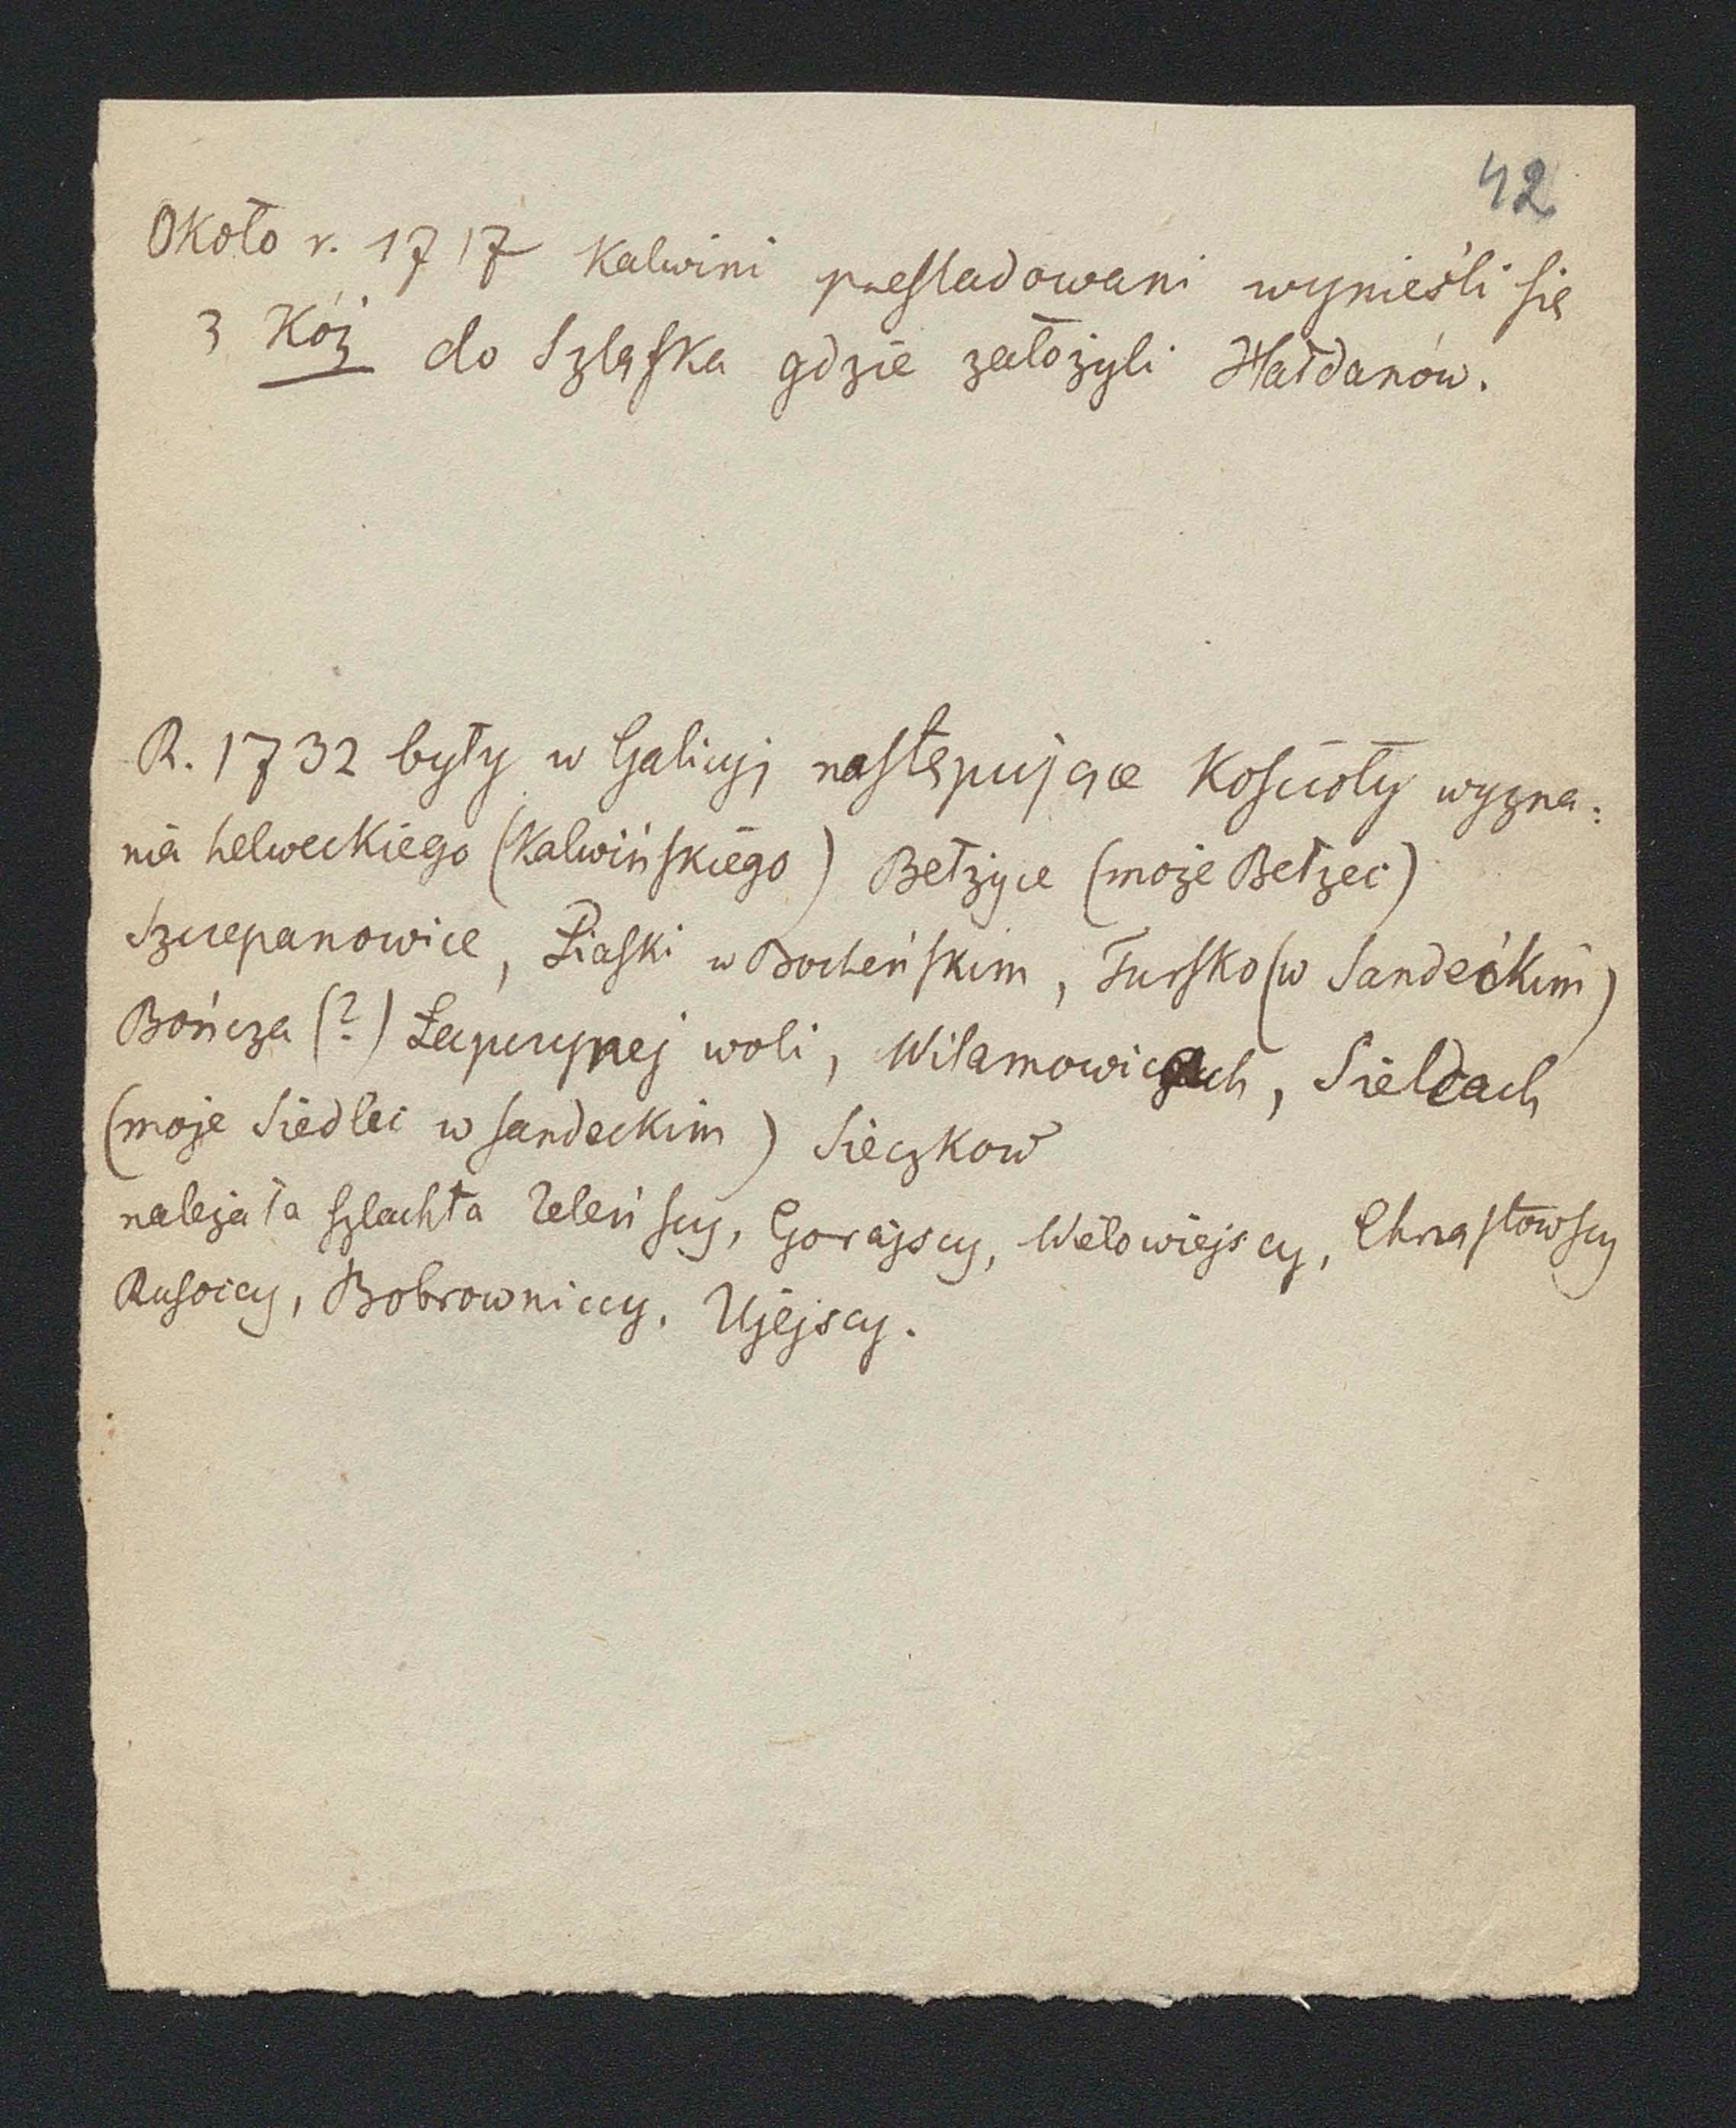 42
Około r. 1717 Kalwini prześladowani wynieśli się
z Kóz do Szląska gdzie założyli Hałdanów.
R. 1732 były w Galicyi następujące Kościoły wyzna:
nia helweckiego (Kalwińskiego) Bełżyce (może Bełzec)
Szczepanowice, Piaski w Bocheńskim, Tursko (w Sandeckim)
Bończa (?) Łapczynej woli, Wilamowicach, Sielcach
(może Siedlec w sandeckim) Sieczków
należała szlachta Zeleńscy, Gorajscy, Wielowiejscy, Chrząstowscy
Bobrowniccy, Ujejscy.